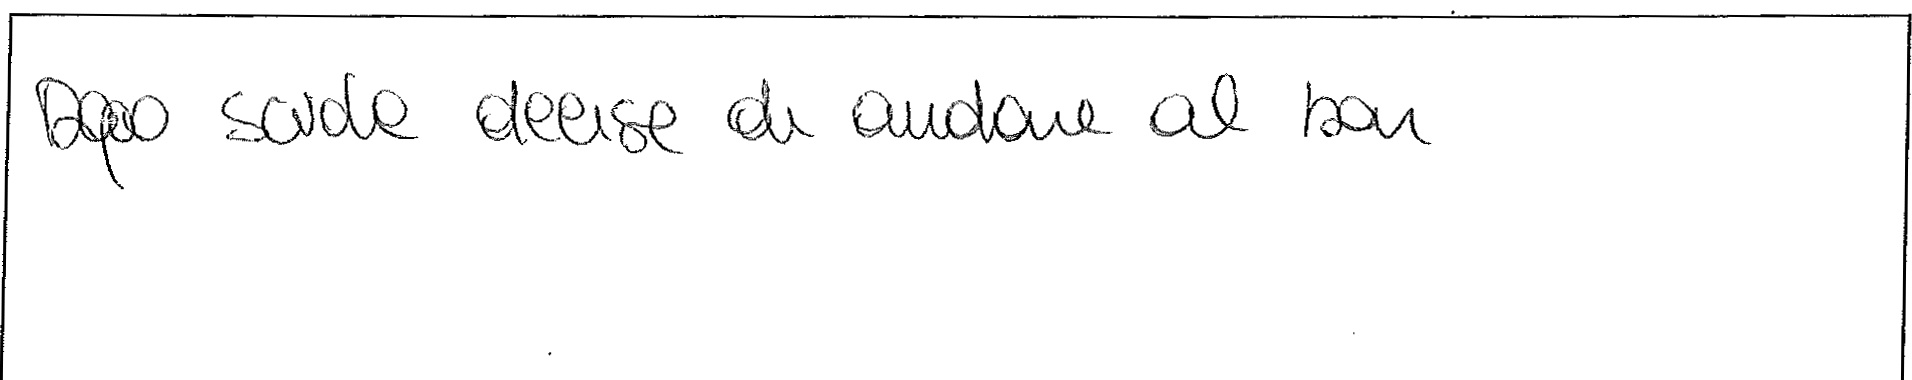 Dopo scuole decise di andare al bar